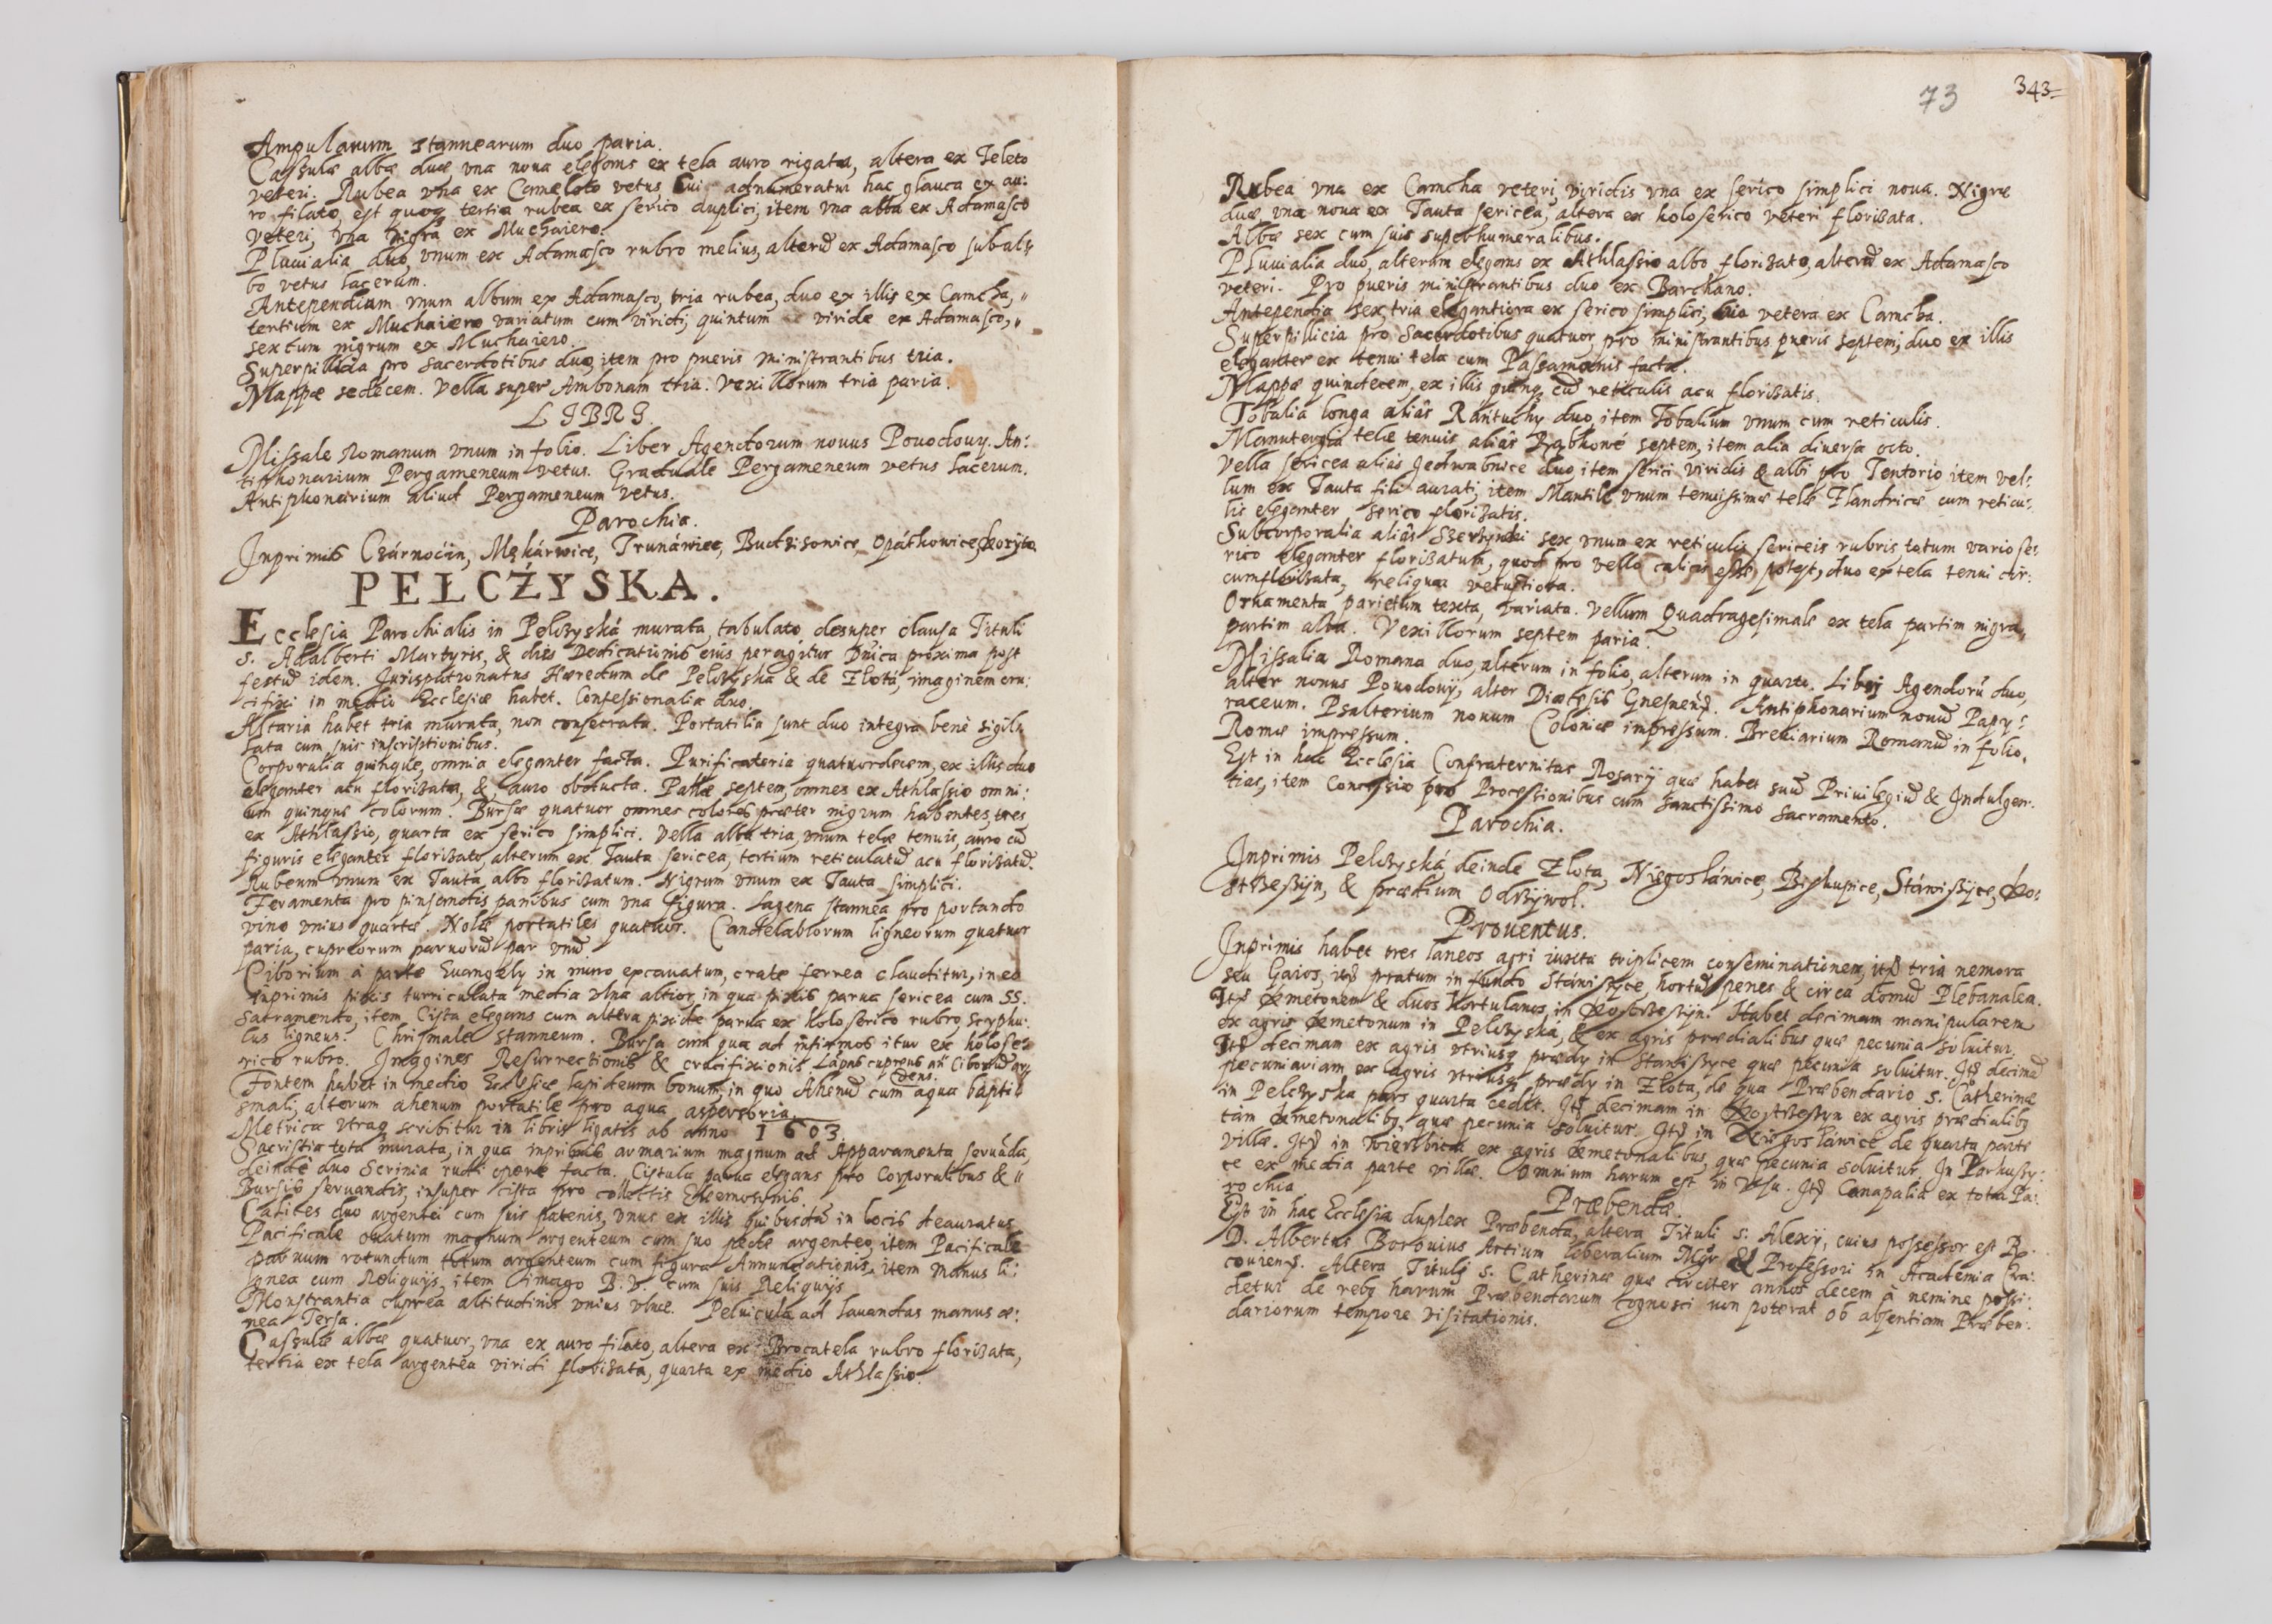 Ampularum stannearum duo paria.
Caszulæ albæ duæ, vna noua elegans ex tela auro rigata, altera ex Teleto
veteri. Rubea vna ex Cameloto vetus, cui adnumeratur hac glauca ex au:
ro filato, est quoq tertia rubea ex serico duplici, item vna alba ex Adamasco
veteri, vna nigra ex Muchaiero.
Pluuialia duo, vnum ex Adamasco rubro melius, alterũ ex Adamasco subal:
bo vetus lacerum.
Antependium vnum album ex Adamasco, tria rubea, duo ex illis ex Camcha,
tertium ex Muchaiero variatum cum viridi, quintum viride ex Adamasco,
sextum nigrum ex Muchaiero.
Superpillicia pro sacerdotibus duo, item pro pueris ministrantibus tria.
Mappæ sedecem. Vella super Ambonam tria. Vexillorum tria paria.
LIBRI
Missale Romanum vnum in folio. Liber Agendorum nouus Pouodouy. An:
tiphonarium Pergameneum vetus. Graduale Pergameneum vetus lacerum.
Antiphonarium aliud Pergameneum vetus.
Parochia.
Inprimis Czárnoćin, Mękárwice, Trunáwiec, Budziszonice, Opátkowice, Koryto
PEŁCŻYSKA.
Ecclesia Parochialis in Pełczyská murata, tabulato desuper clausa Tituli
S. Adalberti Martyris, & dies Dedicationis eius peragitur Dnica proxima post
festũ idem. Jurispatronatus Hæredum de Pełczyska & de Złotá, imaginem cru:
cifixi in medio Ecclesiæ habet. Confessionalia duo.
Altaria habet tria murata, non consecrata. Portatilia sunt duo integra benè sigil:
lata cum suis inscriptionibus.
Corporalia quinque, omnia eleganter facta. Purificatoria quatuordecem, ex illis duo
eleganter acu florizata, & auro obducta. Pallæ septem, omnes ex Athlassio omni:
um quinque colorum. Bursæ quatuor omnes colores præter nigrum habentes, tres
ex Athlassio, quarta ex serico simplici. Vella alba tria, vnum telæ tenuis, auro cũ
figuris eleganter florizato, alterum ex Tauta sericea, tertium reticulatũ acu florizatũ.
Rubeum vnum ex Tauta albo florizatum. Nigrum vnum ex Tauta simplici.
Feramenta pro pinsendis panibus cum vna figura. Lagena stannea pro portando
vino vnius quartæ. Nolæ portatiles quatuor. Candelabrorum ligneorum quatuor
paria, cupreorum paruorũ par vnũ.
Ciborium à parte Euangely in muro excauatum, crate ferrea clauditur, in eo
inprimis pixis turriculata media vlna altior, in qua pixis parua sericea cum SS.
Sacramento, item Cista elegans cum altera pixide parua ex holoserico rubro, scyphu:
lus ligneus. Chrismale stanneum. Bursa cum qua ad infirmos itur ex holose:
rico rubro. Imagines Resurrectionis & crucifixionis. Lápas cupreus añ Ciboriũ ar:
dens.
Fontem habet in medio Ecclesiæ lapideum bonum, in quo Ahenũ cum aqua bapti:
smali, alterum ahenum portatile pro aqua aspersoria.
Metrica vtraq scribitur in libris ligatis ab anno 1603.
Sacristia tota murata, in qua inprimis armarium magnum ad Apparamenta seruáda,
deinde duo Scrinia rudi opere facta. Cistula parua elegans pro Corporalibus &
Bursis seruandis, insuper cista pro collectis Eleemosynis.
Calices duo argentei cum suis patenis, vnus ex illis quibusdã in locis deauratus.
Pacificale ouatum magnum argenteum cum suo pede argenteo, item Pacificale
paruum rotundum totum argenteum cum figura Annunciationis, item manus li:
gnea cum Reliquijs, item imago B. V. cum suis Reliquijs.
Monstrantia cuprea altitudinis vnius vlnæ. Peluicula ad lauandas manus æ:
nea Tersa.
Caszulæ albæ quatuor, vna ex auro filato, altera ex Brocatela rubro florizata,
tertia ex tela argentea viridi florizata, quarta ex medio Athlassio.
73
343
Rubea vna ex Camcha veteri, viridis vna ex serico simplici noua. Nigræ
duæ, vna noua ex Tauta sericea, altera ex holoserico veteri florizata.
Albæ sex cum suis superhumeralibus.
Pluuialia duo, alterum elegans ex Athlassio albo florizato, alterũ ex Adamasco
veteri. Pro pueris ministrantibus duo ex Barchano.
Antependia sex, tria elegantiora ex serico simplici, tria vetera ex Camcha.
Superpillicia pro Sacerdotibus quatuor, pro ministrantibus pueris septem, duo ex illis
eleganter ex tenui tela cum Passamanis facta.
Mappæ quindecem, ex illis quinq cũ reticulis acu florizatis.
Tobalia longa aliàs Rántuchy duo, item Tobalium vnum cum reticulis.
Manutergia telæ tenuis aliàs Rąbkoné septem, item alia diuersa octo.
Vella sericea aliàs Jedwabnice duo, item serici viridis & albi pro Tentorio, item vel:
lum ex Tauta fili aurati, item Mantile vnum tenuissimæ telæ Flandricæ cum reticu:
lis eleganter serico florizatis.
Subcorporalia aliàs Szerzynki sex, vnum ex reticulis sericeis rubris, totum vario se:
rico eleganter florizatum, quod pro vello calicis esse potest, duo ex tela tenui cir:
cumflorizata, reliqua vetustiora.
Ornamenta parietum texta, variata. Vellum Quadragesimale ex tela partim nigra,
partim alba. Vexillorum septem paria.
Missalia Romana duo, alterum in folio, alterum in quarto. Libri Agendorũ duo,
alter nouus Pouodouij, alter Diæcesis Gnesneń. Antiphonarium nouũ Papy:
raceum. Psalterium nouum Coloniæ impressum. Breuiarium Romanũ in folio,
Romæ impressum.
Est in hac Ecclesia Confraternitas Rosarij quæ habet suũ Priuilegiũ & Indulgen:
tias, item Concessio pro Processionibus cum sanctissimo Sacramento.
Parochia.
Inprimis Pełczyská, deinde Złota, Niegosłáwice, Biskupice, Stáwiszyce, Ko:
strzeszyn, & prædium Odrzywoł.
Prouentus.
Inprimis habet tres laneos agri iuxta triplicem conseminationem, itẽ tria nemora
seu Gaios, itẽ pratum in fundo Stáwiszyce, hortũ penes & circa domũ Plebanalem.
Itẽ kmetonem & duos hortulanos in Kostrzeszyn. Habet decimam manipularem
ex agris kmetonum in Pełczyská, & ex agris prædialibus quæ pecunia soluitur.
Itẽ decimam ex agris vtriusq prædy in Stawiszyce quæ pecunia soluitur. Itẽ decimã
pecuniariam ex agris vtriusq prædy in Złota, de qua Præbendario S. Catherinæ
in Pełczyska pars quarta cedit. Itẽ decimam in Kostrzeszyn ex agris prædialibq
tàm kmetonalibq, quæ pecunia soluitur. Itẽ in Niegosłáwice de quarta parte
villæ. Itẽ in Wierzbica ex agris kmetonalibus, quæ pecunia soluitur. In Parhuszy:
ce ex media parte villæ. Omnium harum est in vsu. Itẽ Canapalia ex tota Pa:
rochia.
Præbendæ.
Est in hac Ecclesia duplex Præbenda, altera Tituli S. Alexij, cuius possessor est R.
D. Albertus Borouius Artium liberalium Mgr & Professori in Academia Cra:
couień. Altera Tituli S. Catherinæ quæ circiter annos decem à nemine possi:
detur de rebq harum Præbendarum cognosci non poterat ob absentiam Præben:
dariorum tempore visitationis.